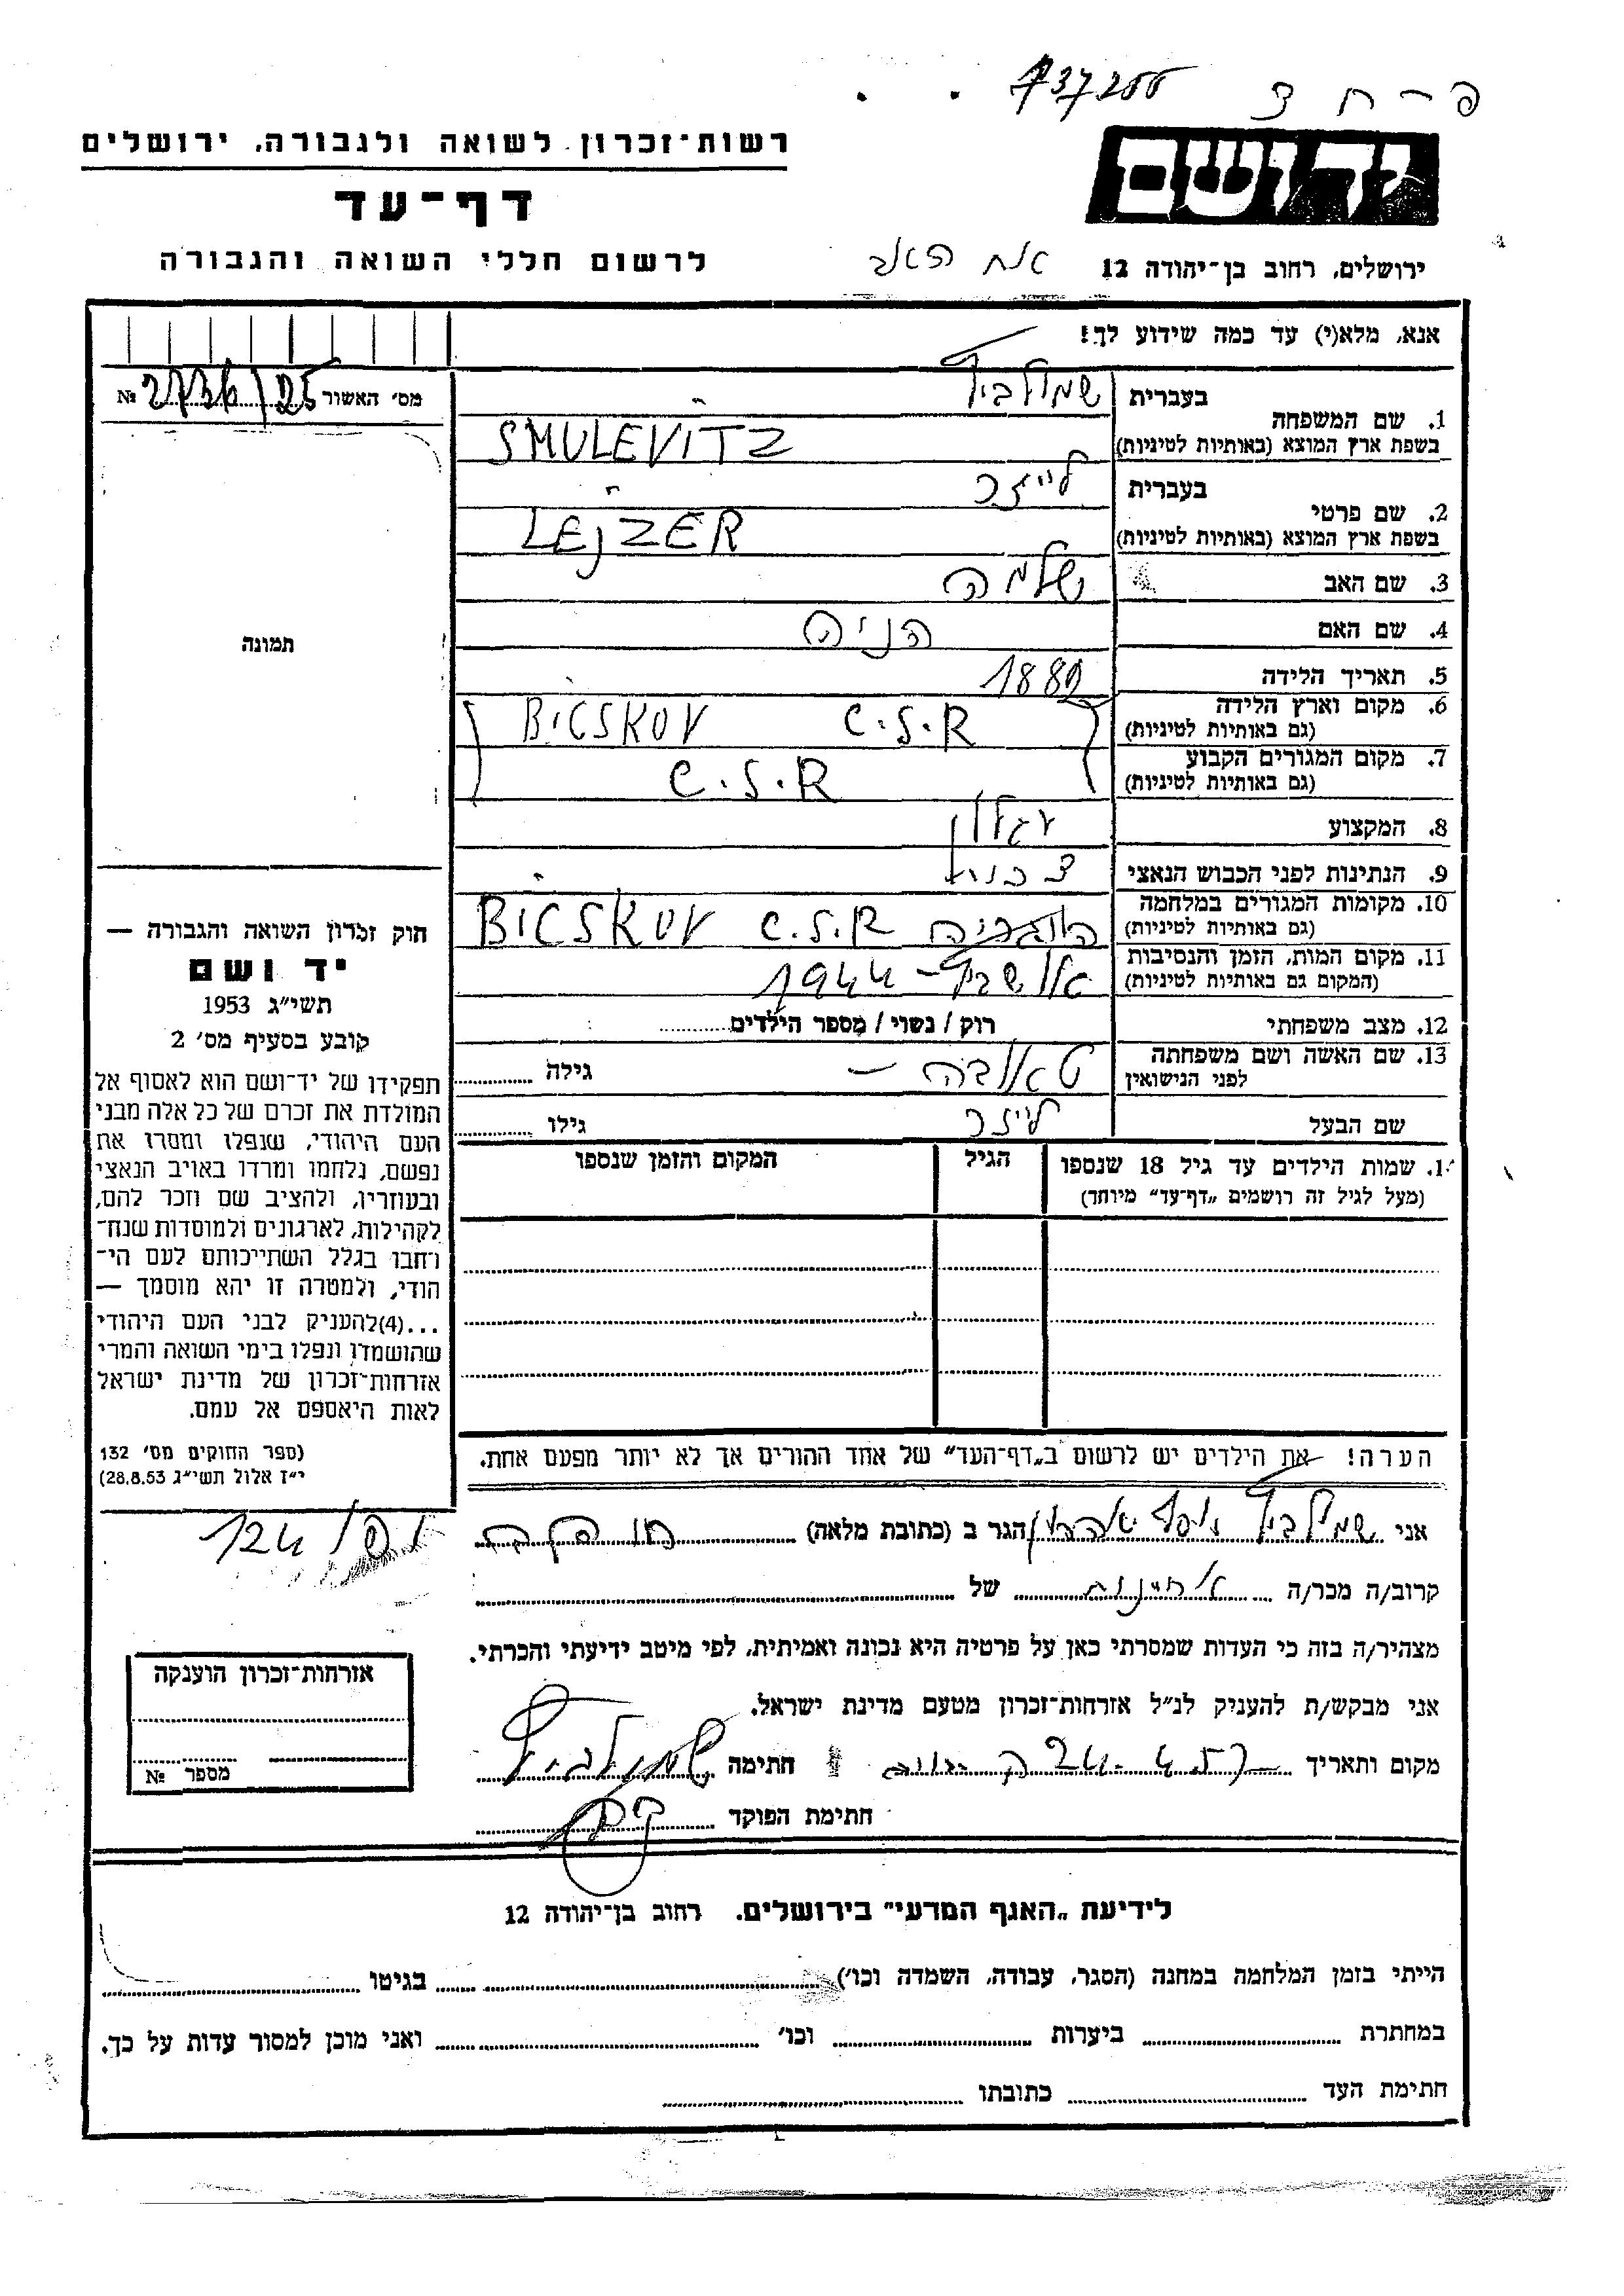 737266
רשות־זכרון לשואה ולגבורה, ירושלים
יד ושם
דף־עד
לרשום חללי השואה והגבורה
ירושלים, רחוב בן־יהודה 12
אח האב
אנא, מלא(י) עד כמה שידוע לך!
מס׳ האשור № 2736/25
תמונה
1. שם המשפחה
בעברית שמולביץ
בשפת ארץ המוצא (באותיות לטיניות) SMULEVITZ
2. שם פרטי
בעברית לייזר
בשפת ארץ המוצא (באותיות לטיניות) LEJZER
3. שם האב שלמה
4. שם האם הניה
5. תאריך הלידה
6. מקום וארץ הלידה (גם באותיות לטיניות) BICSKOV C.S.R
7. מקום המגורים הקבוע (גם באותיות לטיניות) C.S.R
8. המקצוע עגלון
9. הנתינות לפני הכבוש הנאצי
10. מקומות המגורים במלחמה (גם באותיות לטיניות) הונגריה BICSKOV C.S.R
11. מקום המות, הזמן והנסיבות (המקום גם באותיות לטיניות) אושביץ – 1944
12. מצב משפחתי רוק / נשוי / מספר הילדים
13. שם האשה ושם משפחתה לפני הנישואין טאובה – גילה
שם הבעל לייזר גילו
1. שמות הילדים עד גיל 18 שנספו
(מעל לגיל זה רושמים „דף־עד” מיוחד)
הגיל
המקום והזמן שנספו
הערה! את הילדים יש לרשום ב„דף־העד” של אחד ההורים אך לא יותר מפעם אחת.
חוק זכרון השואה והגבורה —
יד ושם
תשי״ג 1953
קובע בסעיף מס׳ 2
תפקידו של יד־ושם הוא לאסוף אל
המולדת את זכרם של כל אלה מבני
העם היהודי, שנפלו ומסרו את
נפשם, נלחמו ומרדו באויב הנאצי
ובעוזריו, ולהציב שם וזכר להם,
לקהילות, לארגונים ולמוסדות שנח־
רחבו בגלל השתייכותם לעם הי־
הודי, ולמטרה זו יהא מוסמך —
...(4)להעניק לבני העם היהודי
שהושמדו ונפלו בימי השואה והמרי
אזרחות־זכרון של מדינת ישראל
לאות היאספם אל עמם.
(ספר החוקים מס׳ 132
י״ז אלול תשי״ג 28.8.53)
אני שמולביץ יוסף אהרון הגר ב (כתובת מלאה)
קרוב/ה מכר/ה אחינות של
מצהיר/ה בזה כי העדות שמסרתי כאן על פרטיה היא נכונה ואמיתית, לפי מיטב ידיעתי והכרתי.
אני מבקש/ת להעניק לנ״ל אזרחות־זכרון מטעם מדינת ישראל.
מקום ותאריך חתימה שמולביץ
חתימת הפוקד
אזרחות־זכרון הוענקה
מספר №
לידיעת „האגף המדעי” בירושלים. רחוב בן־יהודה 12
הייתי בזמן המלחמה במחנה (הסגר, עבודה, השמדה וכו׳) בגיטו
במחתרת ביערות וכו׳ ואני מוכן למסור עדות על כך.
חתימת העד כתובתו